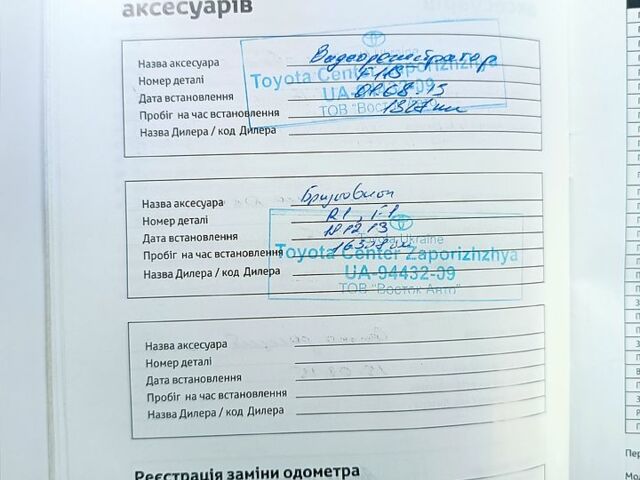 аксесуарів
Назва аксесуара Видеорегистратор
Номер деталі F113
Дата встановлення
Пробіг на час встановлення
Назва Дилера / код Дилера
Toyota Center Zaporizhzhya
ТОВ "Восток
Назва аксесуара Бризговики
Номер деталі R1, F1
Дата встановлення
Пробіг на час встановлення
Назва Дилера / код Дилера
Toyota Ukraine
Toyota Center Zaporizhzhya
UA-94432-09
ТОВ "Восток Авто"
Назва аксесуара
Номер деталі
Дата встановлення
Пробіг на час встановлення
Назва Дилера / код Дилера
Реєстрація заміни одометра
Пер